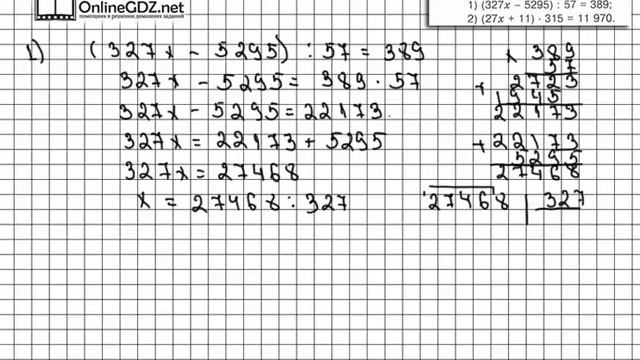 OnlineGDZ.net
помощник в решении домашних заданий
1) (327x – 5295) : 57 = 389;
2) (27x + 11) · 315 = 11 970.
1) (327x - 5295) : 57 = 389
327x - 5295 = 389 · 57
327x - 5295 = 22173.
327x = 22173 + 5295
327x = 27468
x = 27468 : 327
x 389
57
+ 2723
1945
22173
+ 22173
5295
27468
27468 | 327